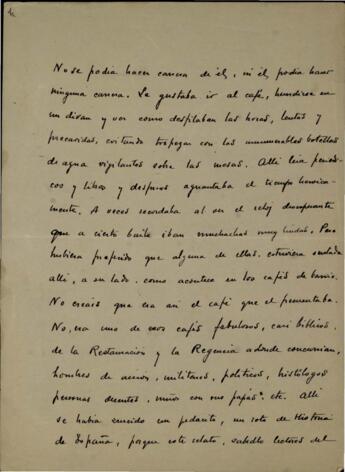 No se podía hacer carrera de él, ni él podía hacer
ninguna carrera. Le gustaba ir al café, hundirse en
un divan y ver como desfilaban las horas, lentas y
precavidas, evitando tropezar con las innumerables botellas
de agua vigilantes sobre las mesas. Allí leía periódi-
cos y libros y después aguantaba el tiempo heroica-
mente. A veces recordaba al ver el reloj
que a cierto baile iban muchachas muy lindas. Pero
hubiera preferido que alguna de ellas estuviera sentada
allí, a su lado, como acontece en los cafés de barrio.
No creais que era así el café que el frecuentaba.
No, era uno de esos cafés fabulosos, casi bíblicos,
de la Restauración y la Regencia adonde concurrían,
hombres de acción, militares, políticos, histólogos
personas decentes, niños con sus papás, etc. Allí
se había vencido un pedacito, un rato de Historia
de España, porque este relato, sabedlo lectores del